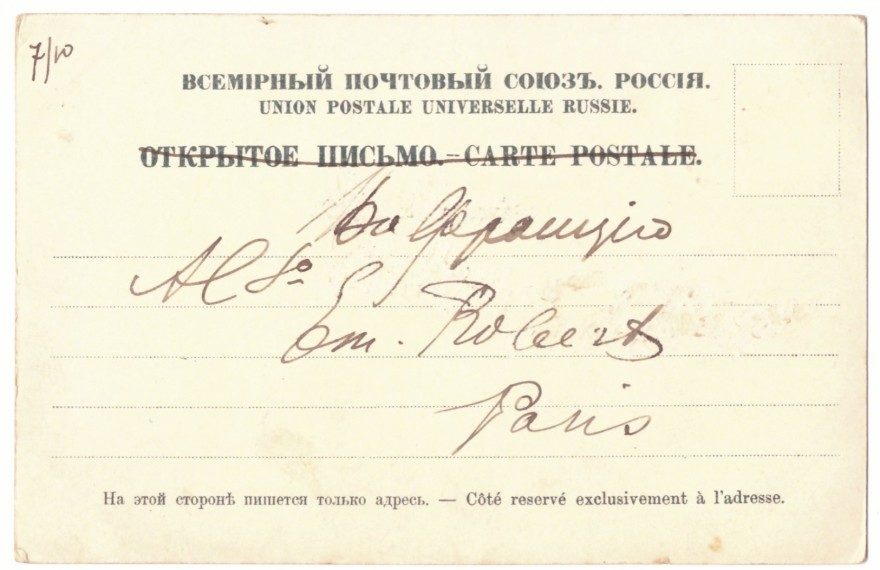 7/10
ВСЕМІРНЫЙ ПОЧТОВЫЙ СОЮЗЪ. РОССІЯ.
UNION POSTALE UNIVERSELLE RUSSIE.
ОТКРЫТОЕ ПИСЬМО.–CARTE POSTALE.
Во Францію
Al Sº
Em. Robert
Paris
На этой сторонѣ пишется только адресь. — Côté reservé exclusivement à l'adresse.